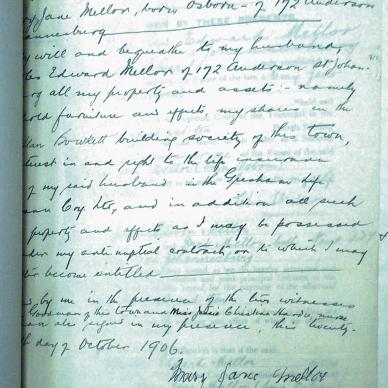 Jane Mellor, born Osborn - of 172 Anderson
will and bequeathe to my husband,
Edward Mellor of 172 Anderson St Johan-
all my property and assets :- namely
furniture and effects, my shares in the
Bowkett building society of this town,
in and right to the life insurance
of my said husband in the Gresham Life
Coy Ltd, and in addition all such
property and effects as I may be possessed
my antinuptial contract or to which I may
become entitled
by me in the presence of the two witnesses
of this town and Miss Christina Hardie, nurse
in my presence, this twenty-
day of October 1906.
Mary Jane Mellor